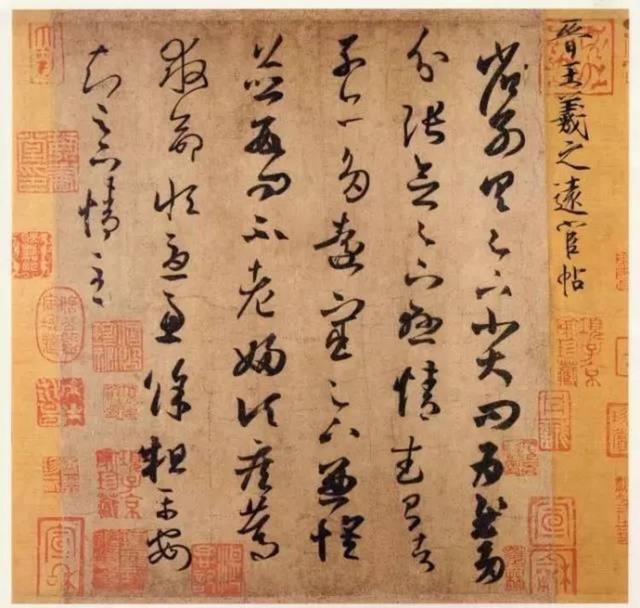 晉王羲之遠宦帖
省別具足下小大問為慰多
分張念足下懸情武昌諸
子亦多遠宦足下兼懷
並數問不老婦頃疾篤
救命恒憂慮餘粗平安
知足下情至